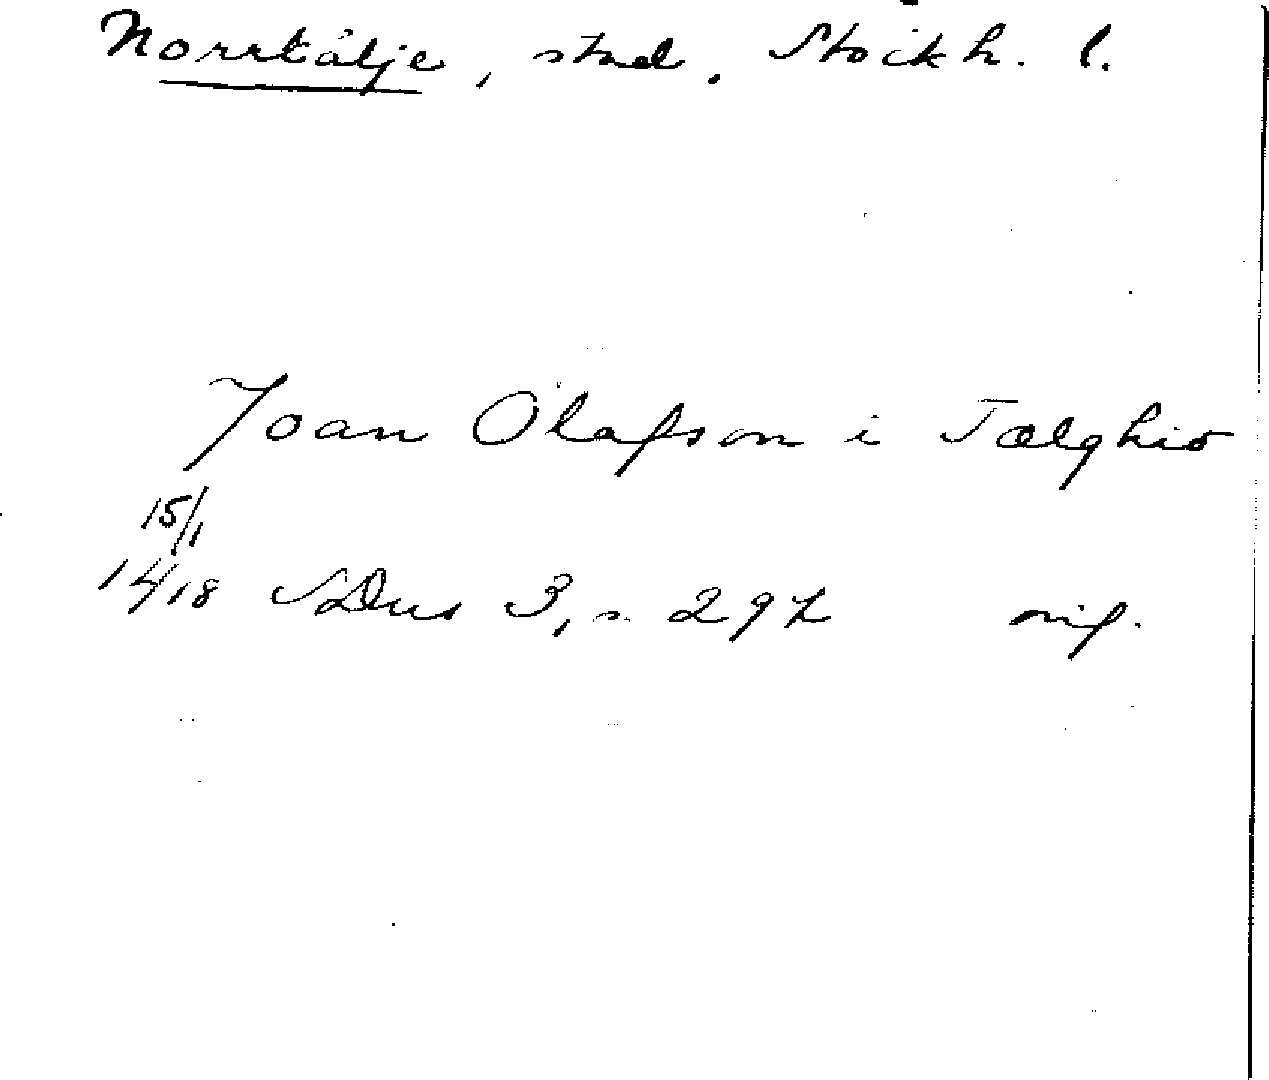 Norrtälje, stad. Stockh. l.
Joan Olafson i Tælghio
15/1
1418 SDns 3, s. 292 orig.